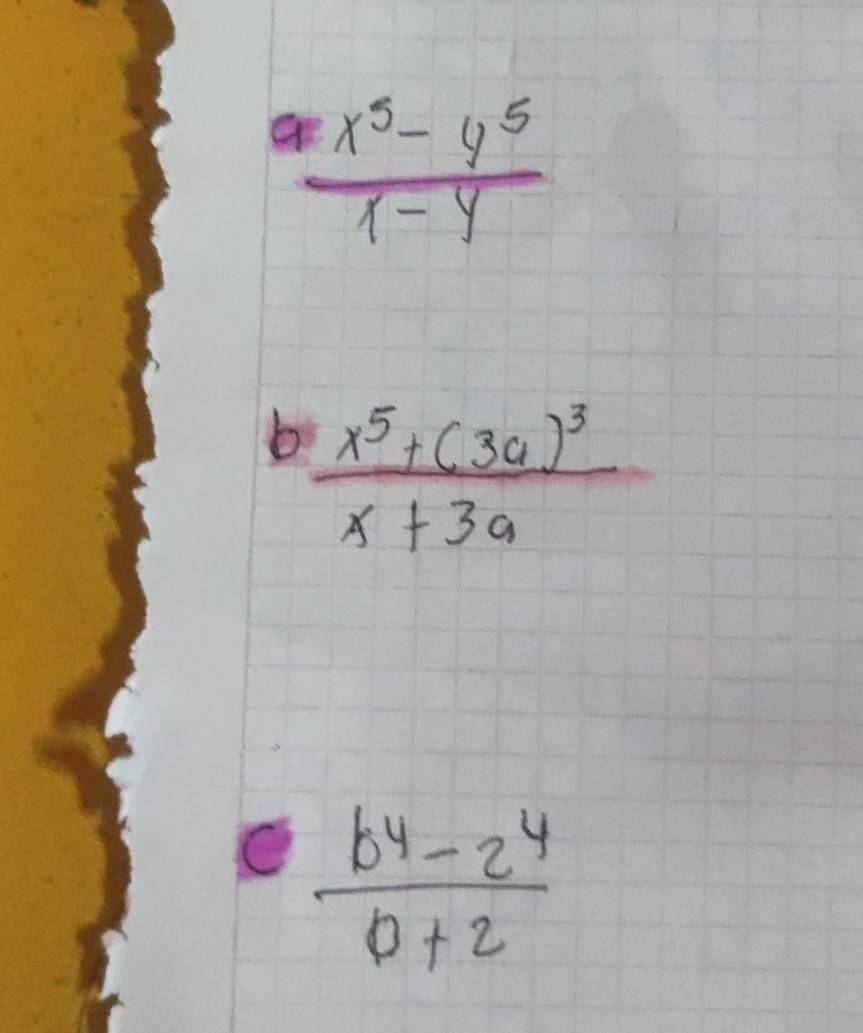 a x⁵ - y⁵
x - y
b x⁵ + (3a)³
x + 3a
c b⁴ - 2⁴
b + 2